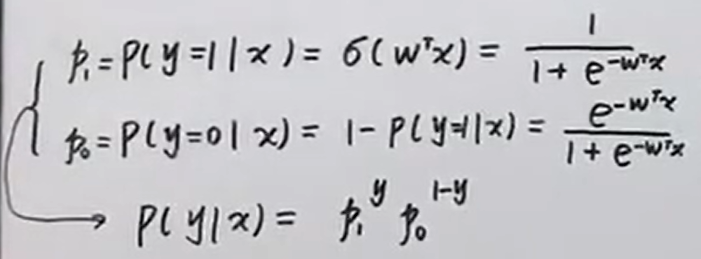 p₁ = P(y=1|x) = σ(wᵀx) = 1 / (1 + e^(-wᵀx))
p₀ = P(y=0|x) = 1 - P(y=1|x) = e^(-wᵀx) / (1 + e^(-wᵀx))
P(y|x) = p₁^y p₀^(1-y)